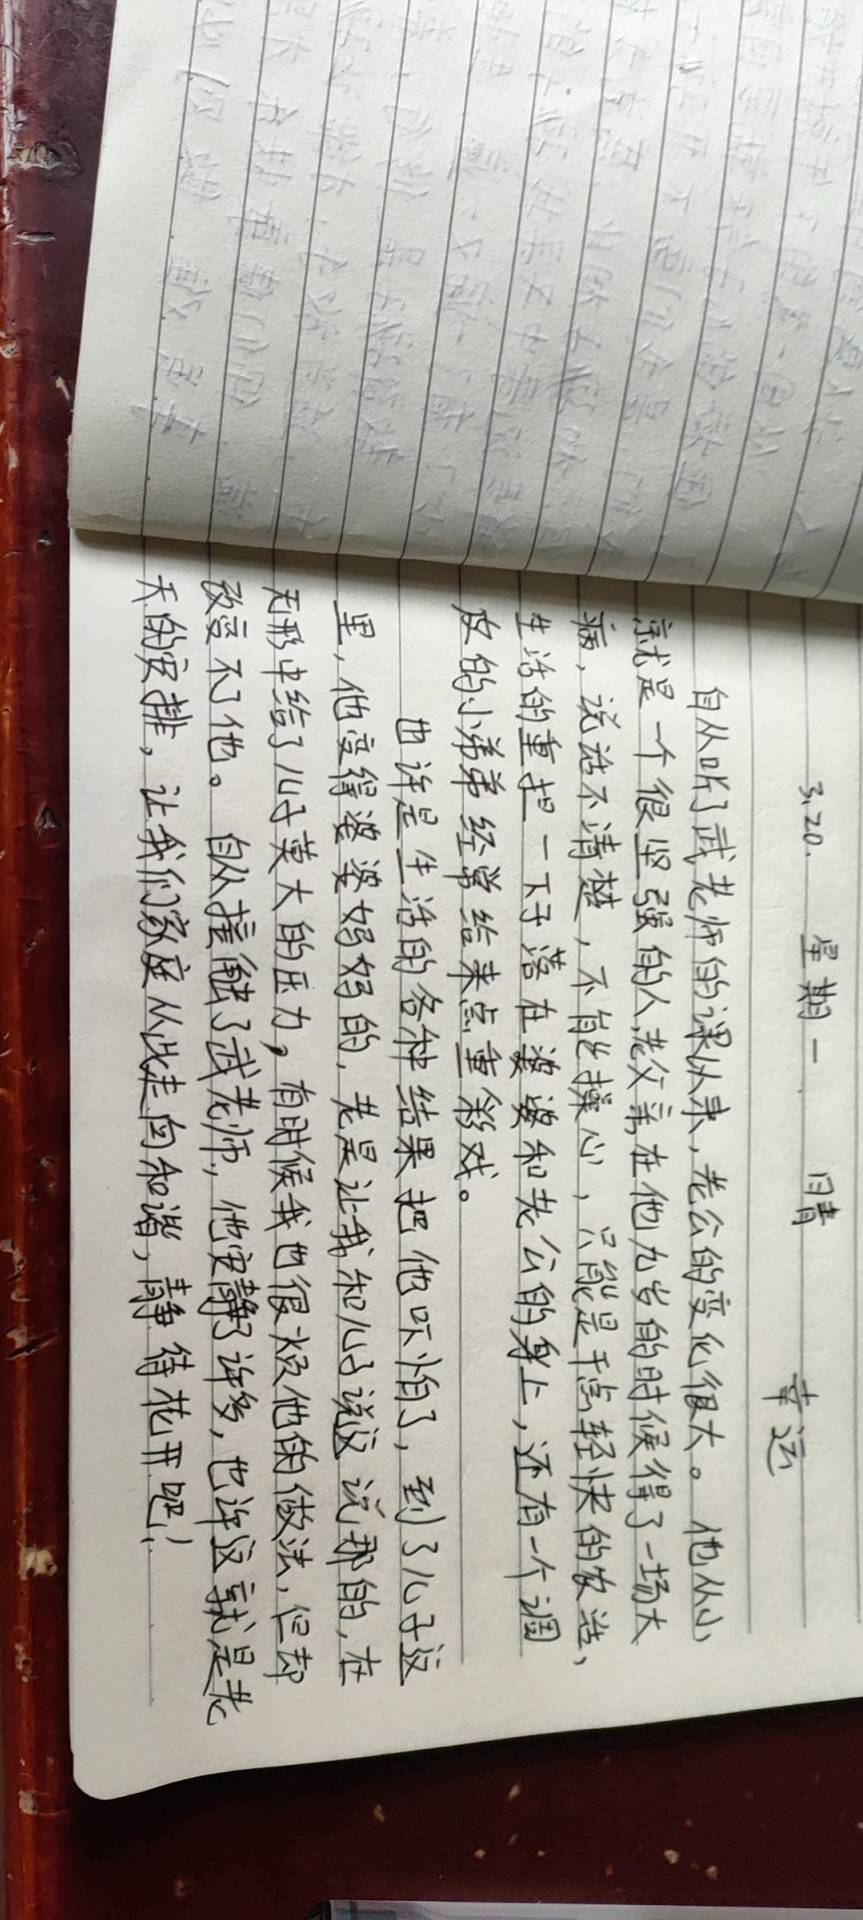 3.20. 星期一 晴 幸运
自从听了武老师的课以来，老公的变化很大。他从小
就是一个很坚强的人，老父亲在他九岁的时候得了一场大
病，说话不清楚，不能操心，只能是干点轻快的农活，
生活的重担一下子落在婆婆和老公的身上，还有一个调
皮的小弟弟经常给来点重彩戏。
也许是生活的各种结果把他吓怕了，到了儿子这
里，他变得婆婆妈妈的，老是让我和儿子说这说那的，在
无形中给了儿子莫大的压力，有时候我也很烦他的做法，但却
改变不了他。自从接触了武老师，他安静了许多，也许这就是老
天的安排，让我们家庭从此走向和谐，静待花开吧！